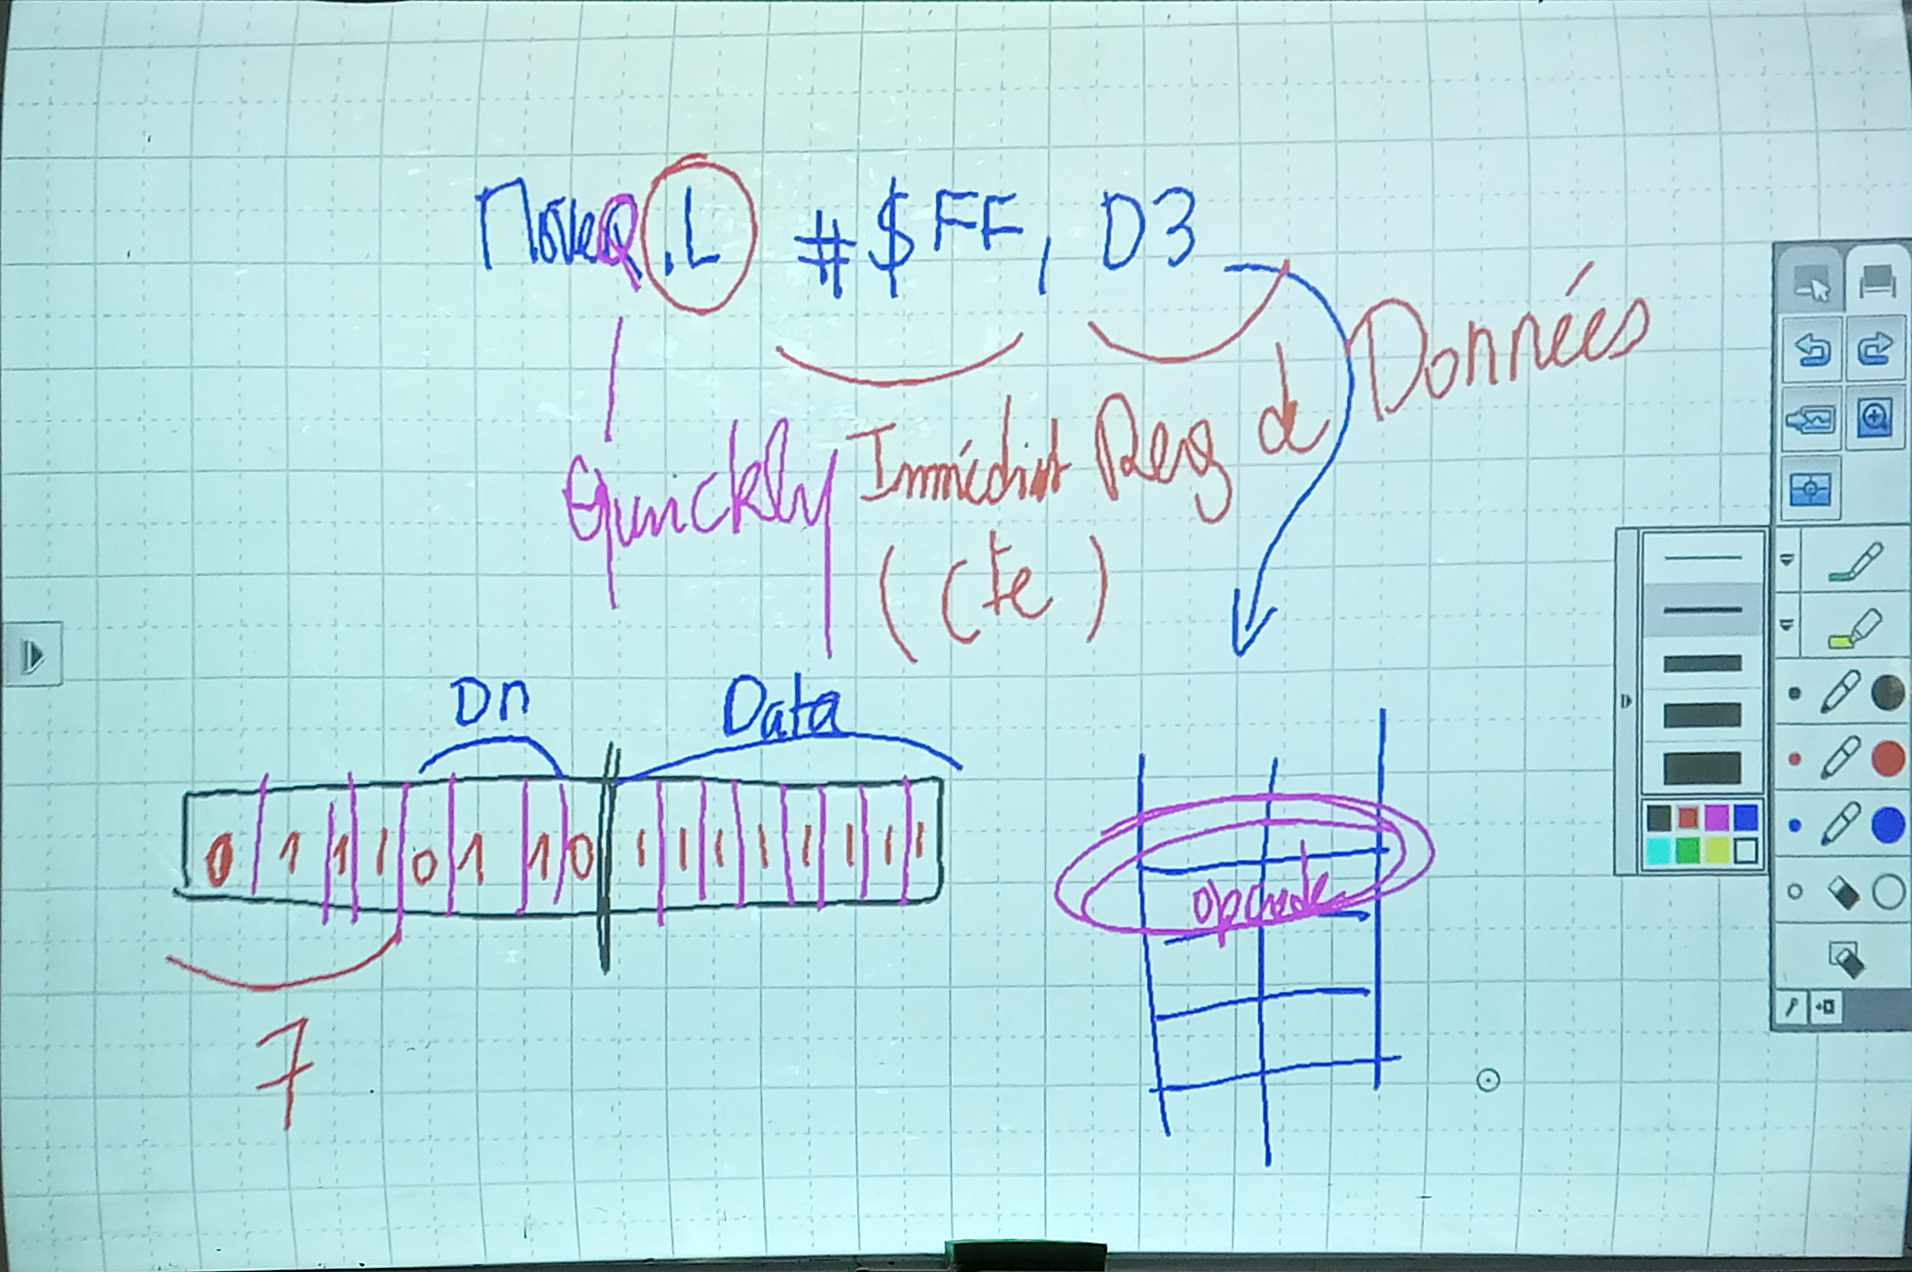 MoveQ.L #$FF, D3
Quickly Immédiat Reg de Données
(Cte)
Dn Data
0 1 1 1 0 1 1 0 1 1 1 1 1 1 1 1
opcode
7